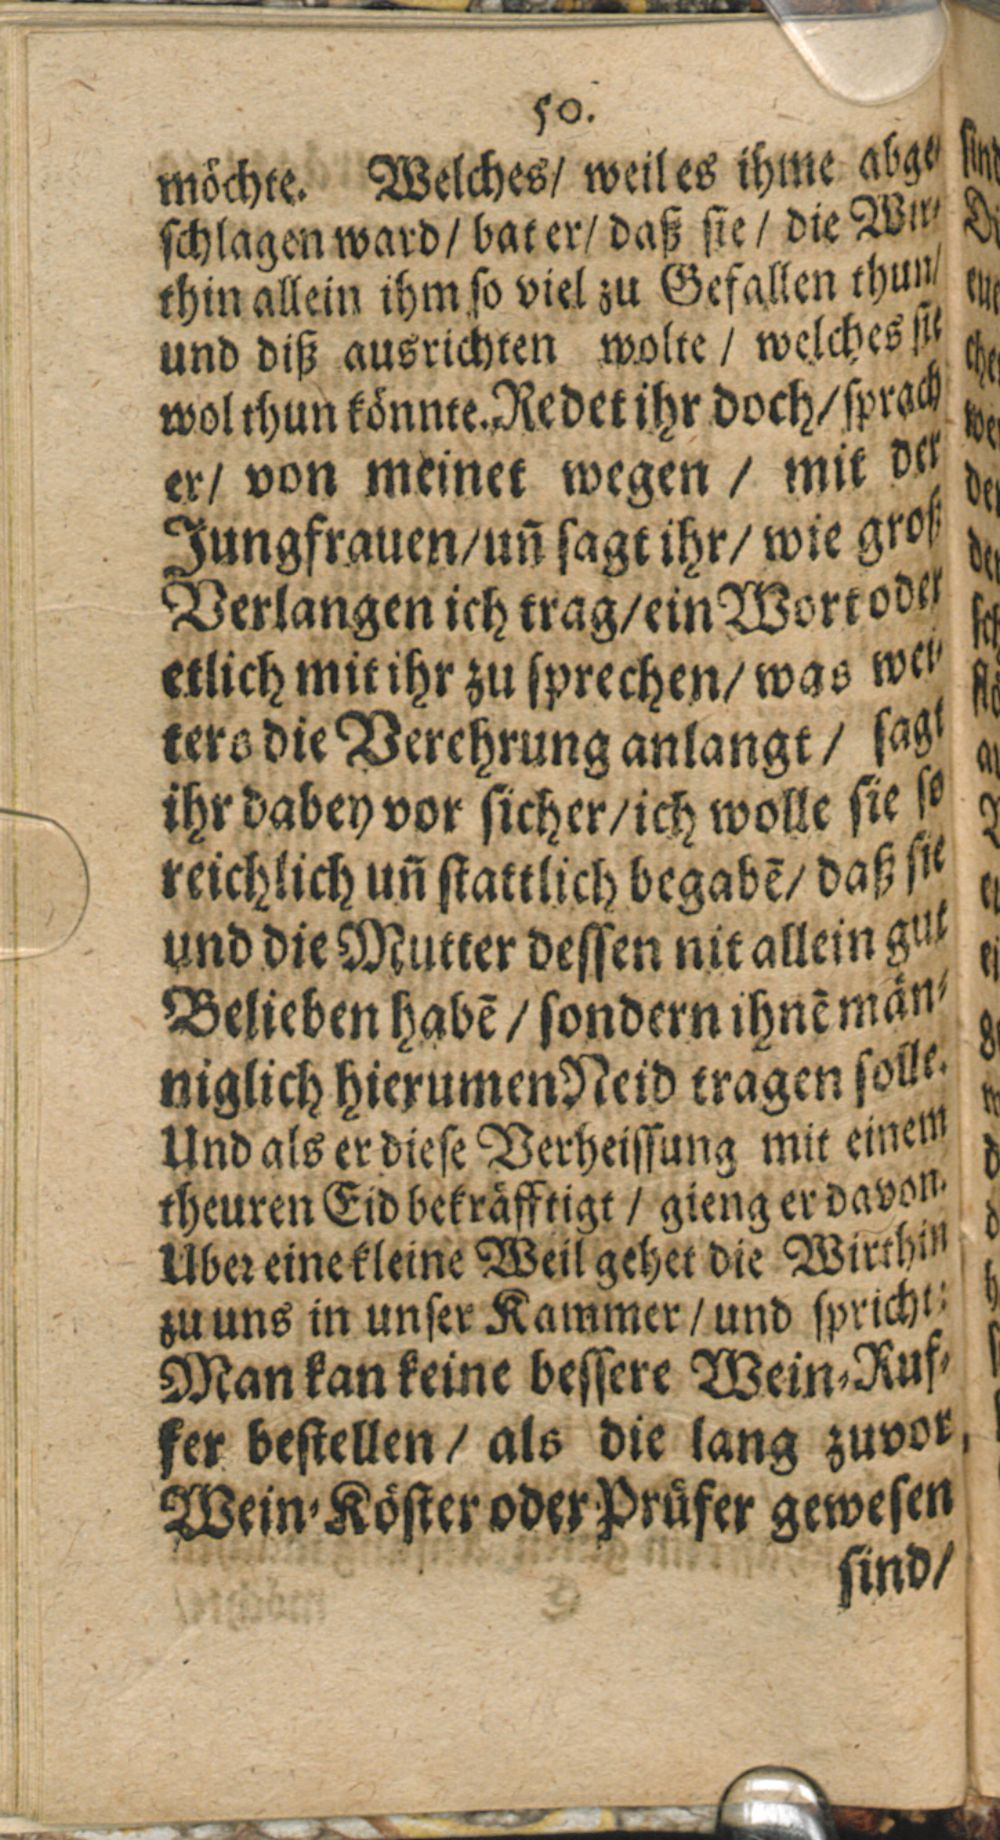 50.
möchte. Welches/ weil es ihme abge-
schlagen ward/ bat er/ daß sie/ die Wir-
thin allein ihm so viel zu Gefallen thun/
und diß ausrichten wolte/ welches sie
wol thun könnte. Redet ihr doch/ sprach
er/ von meinet wegen/ mit der
Jungfrauen/ uñ sagt ihr/ wie groß
Verlangen ich trag/ ein Wort oder
etlich mit ihr zu sprechen/ was wei-
ters die Verehrung anlangt/ sagt
ihr dabey vor sicher/ ich wolle sie so
reichlich uñ stattlich begabē/ daß sie
und die Mutter dessen nit allein gut
Belieben habē/ sondern ihnē män-
niglich hierumen Neid tragen solle.
Und als er diese Verheissung mit einem
theuren Eid bekräfftigt/ gieng er davon.
Uber eine kleine Weil gehet die Wirthin
zu uns in unser Kammer/ und spricht:
Man kan keine bessere Wein-Ruf-
fer bestellen/ als die lang zuvor
Wein-Köster oder Prüfer gewesen
sind/